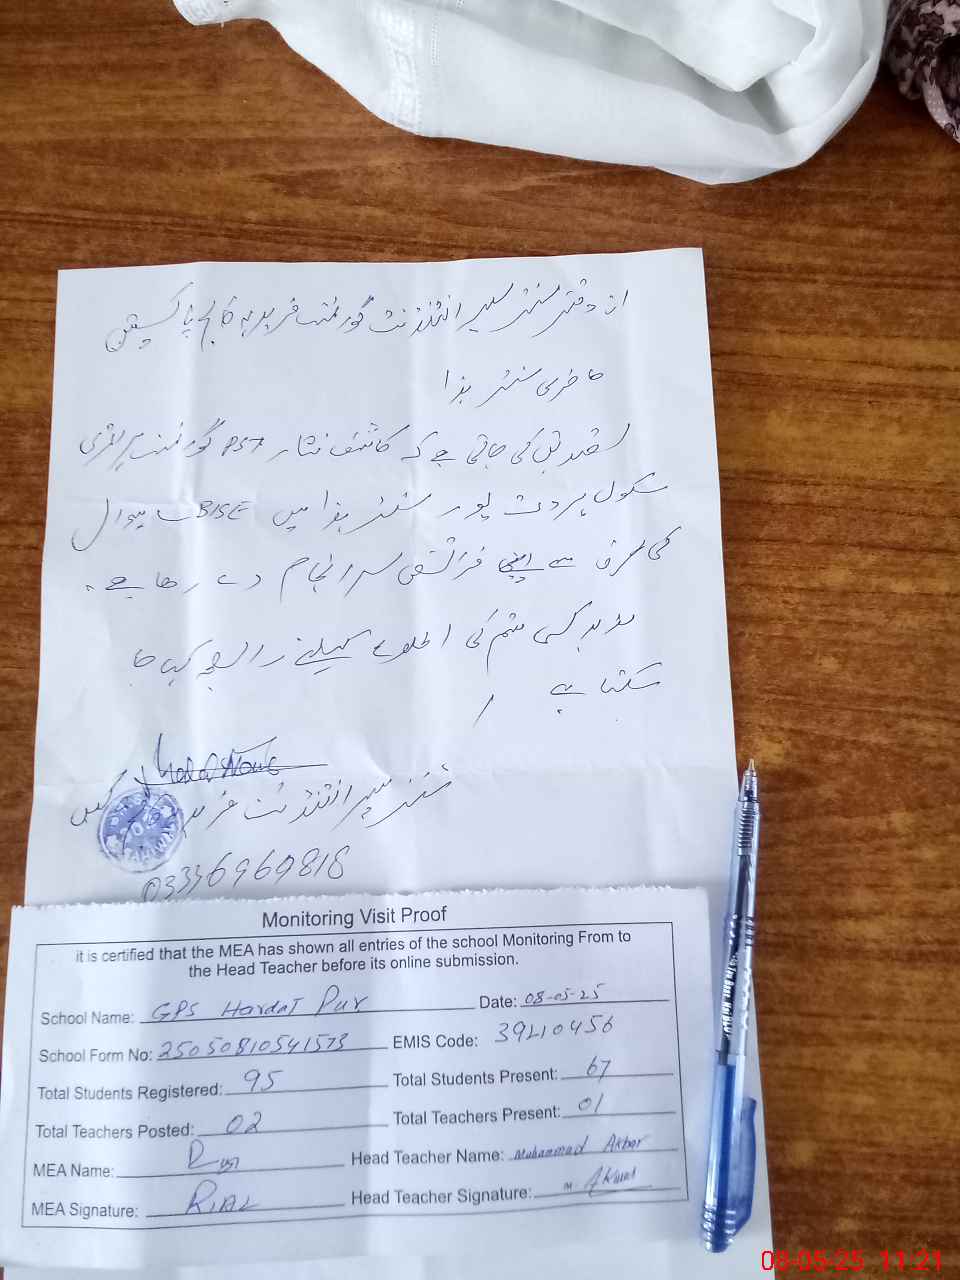 از دفتر سنٹر سپرانٹنڈنٹ گورنمنٹ فریدیہ کالج پاکپتن
حاضری سنٹر ہذا
تصدیق کی جاتی ہے کہ کاشف نثار PST گورنمنٹ پرائمری
سکول ہردت پور سنٹر ہذا میں BISE ساہیوال
کی طرف سے اپنے فرائض سرانجام دے رہا ہے۔
مزید کسی قسم کی اطلاع کیلئے رابطہ کیا جا
سکتا ہے
سنٹر سپرانٹنڈنٹ
03336960818
Monitoring Visit Proof
it is certified that the MEA has shown all entries of the school Monitoring From to
the Head Teacher before its online submission.
School Name: GPS Hardat Pur Date: 08-05-25
School Form No: 25050810541573 EMIS Code: 39410456
Total Students Registered: 95 Total Students Present: 67
Total Teachers Posted: 02 Total Teachers Present: 01
MEA Name: Head Teacher Name: Muhammad Akbar
MEA Signature: Head Teacher Signature: M. Akbar
08-05-25 11:21